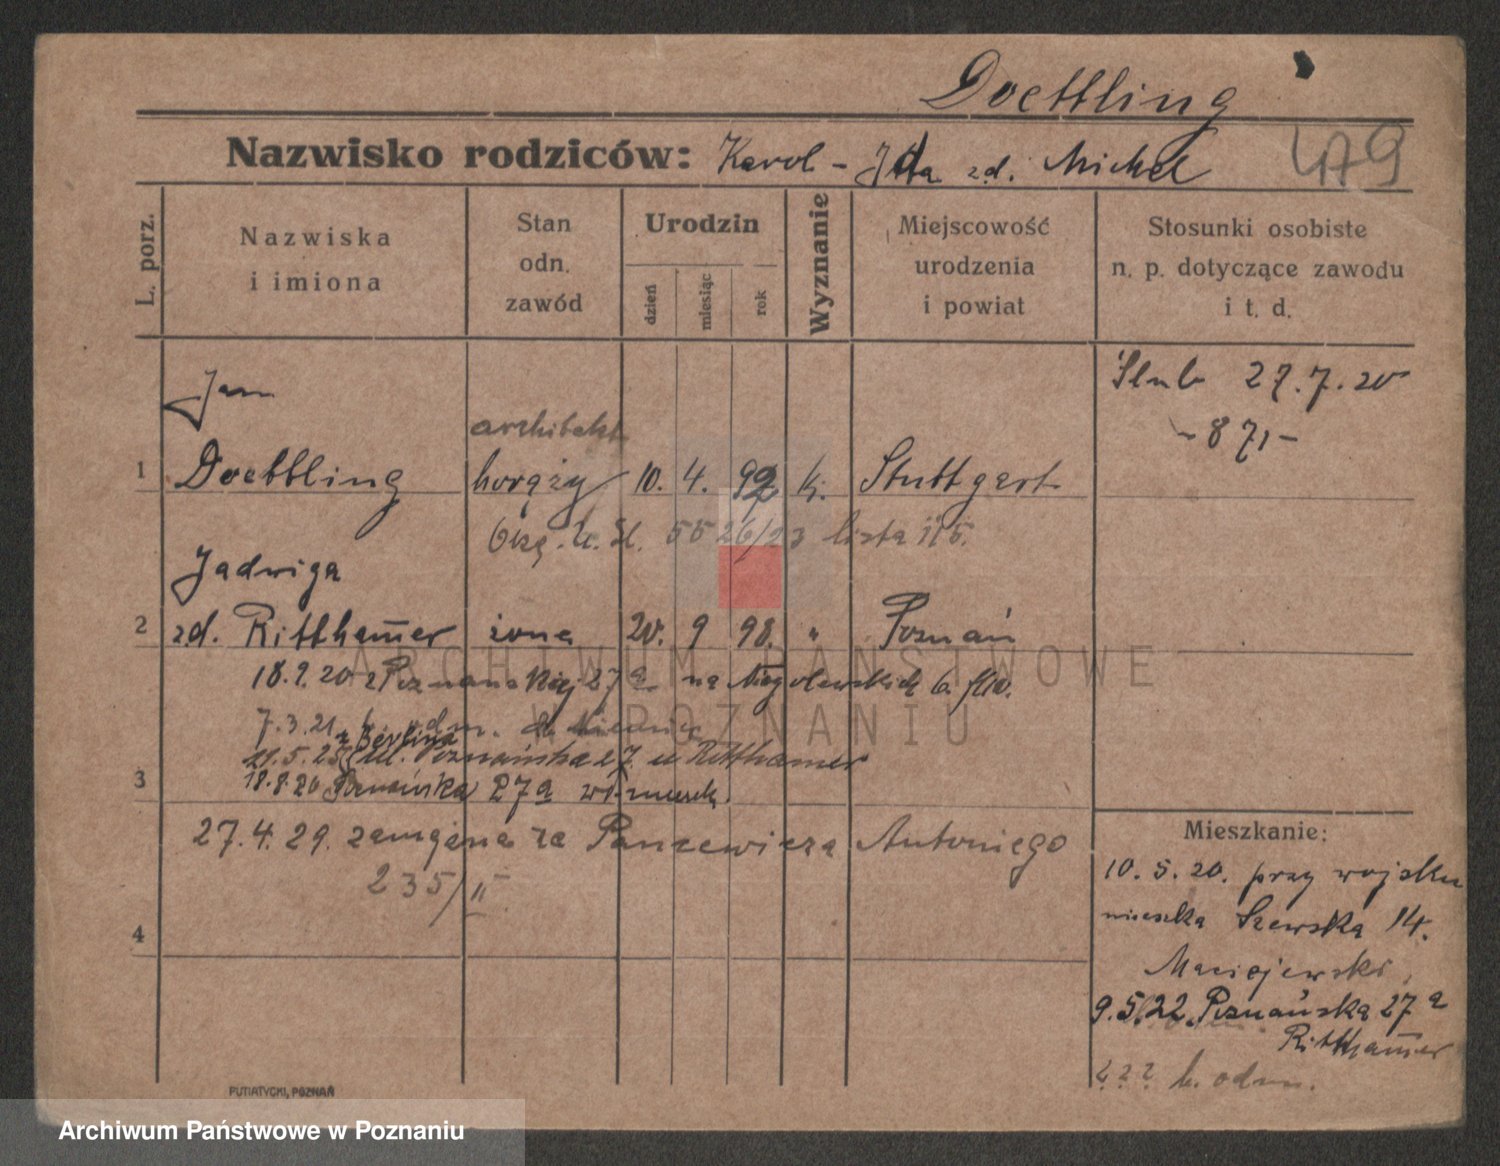 Doettling
Nazwisko rodziców: Karol - Ida zd. Michel
479
L. porz.
Nazwiska
i imiona
Stan
odn.
zawód
Urodzin
dzień
miesiąc
rok
Wyznanie
Miejscowość
urodzenia
i powiat
Stosunki osobiste
n. p. dotyczące zawodu
i t. d.
Ślub 27.7.20
- 871 -
Jan
architekt
1 Doettling chorąży 10. 4. 92 k. Stuttgart
5526/23 lista 115.
Jadwiga
2 zd. Rittham̅er żona 20. 9 98. " Poznań
18.9.20 z Poznańskiej 27a na Niegolewskich 6.
7.3.21 b. odm.
z Berlina
21.5.25 ul. Poznańska 27. u Ritthamer
3 18.8.20 Poznańska 27a
27.4.29. zamężna za Pancewicza Antoniego
235/II
4
Mieszkanie:
10. 5. 20. przy wojsku
mieszka Szewska 14.
Maciejewski
9.5.22. Poznańska 27a
Ritham̅er
? ? ? b. odm.
PUTIATYCKI, POZNAŃ
ARCHIWUM PAŃSTWOWE
W POZNANIU
Archiwum Państwowe w Poznaniu